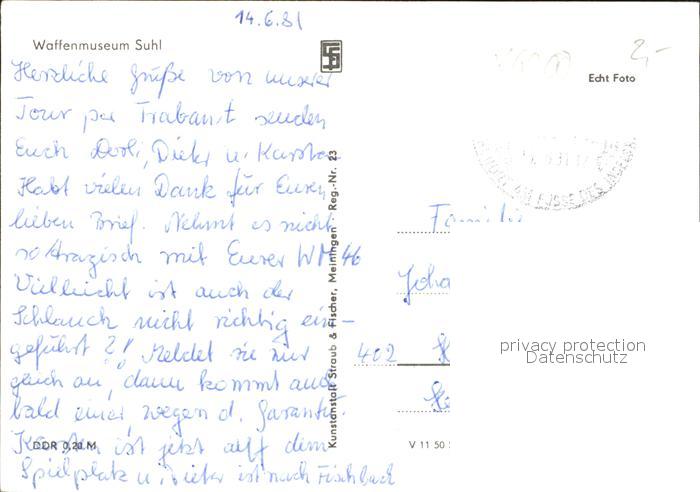 14.6.81
Waffenmuseum Suhl
Herzliche Grüße von unserer
Tour per Trabant senden
Euch Dorli, Dieter u. Karsten
Habt vielen Dank für Euren
lieben Brief. Nehmt es nicht
so tragisch mit Eurer WM 46
Vielleicht ist auch der
Schlauch nicht richtig ein-
geführt?! Meldet sie nur
gleich an, dann kommt auch
bald einer, wegen d. Garantie.
Karsten ist jetzt auf dem
Spielplatz u. Dieter ist nach Fischbach
DDR 0,20 M
Kunstanstalt Straub & Fischer, Meiningen Reg.-Nr. 23
2,-
Echt Foto
Familie
Joha
402
V 11 50
privacy protection
Datenschutz